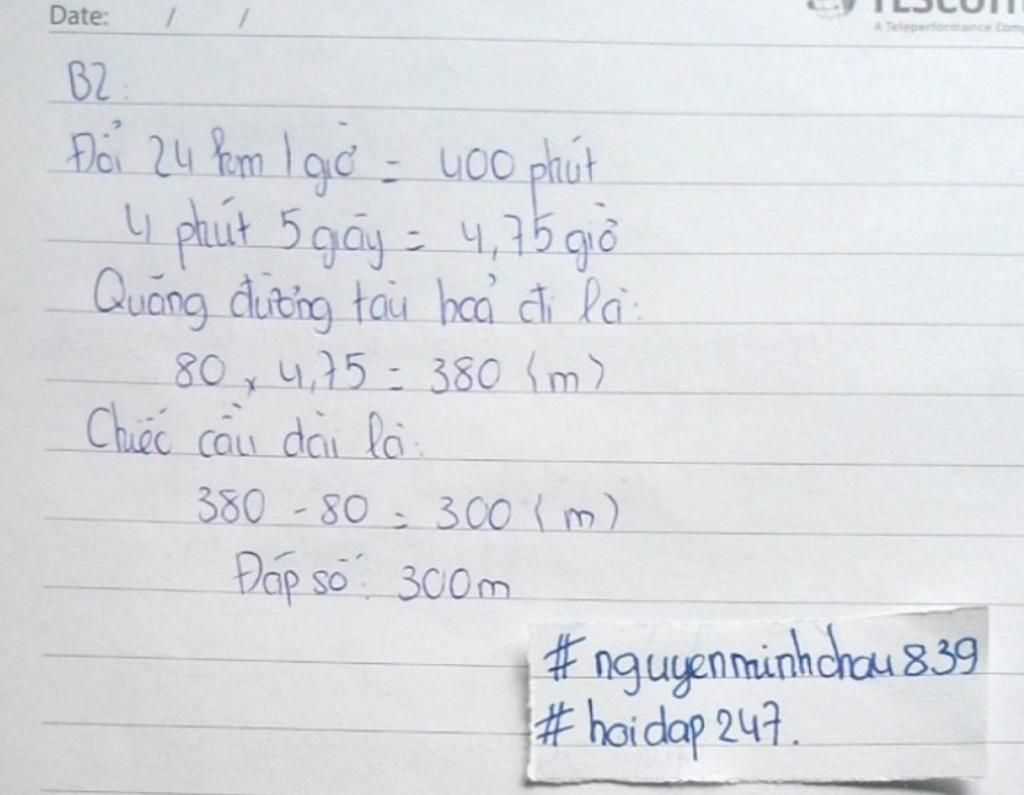 Date: / /
A Teleperformance Com
B2:
Đổi 24 km/giờ = 400 phút
4 phút 5 giây = 4,75 giờ
Quãng đường tàu hoả đi là:
80 x 4,75 = 380 (m)
Chiếc cầu dài là:
380 - 80 = 300 (m)
Đáp số: 300m
# nguyenminhchau839
# hoidap247.